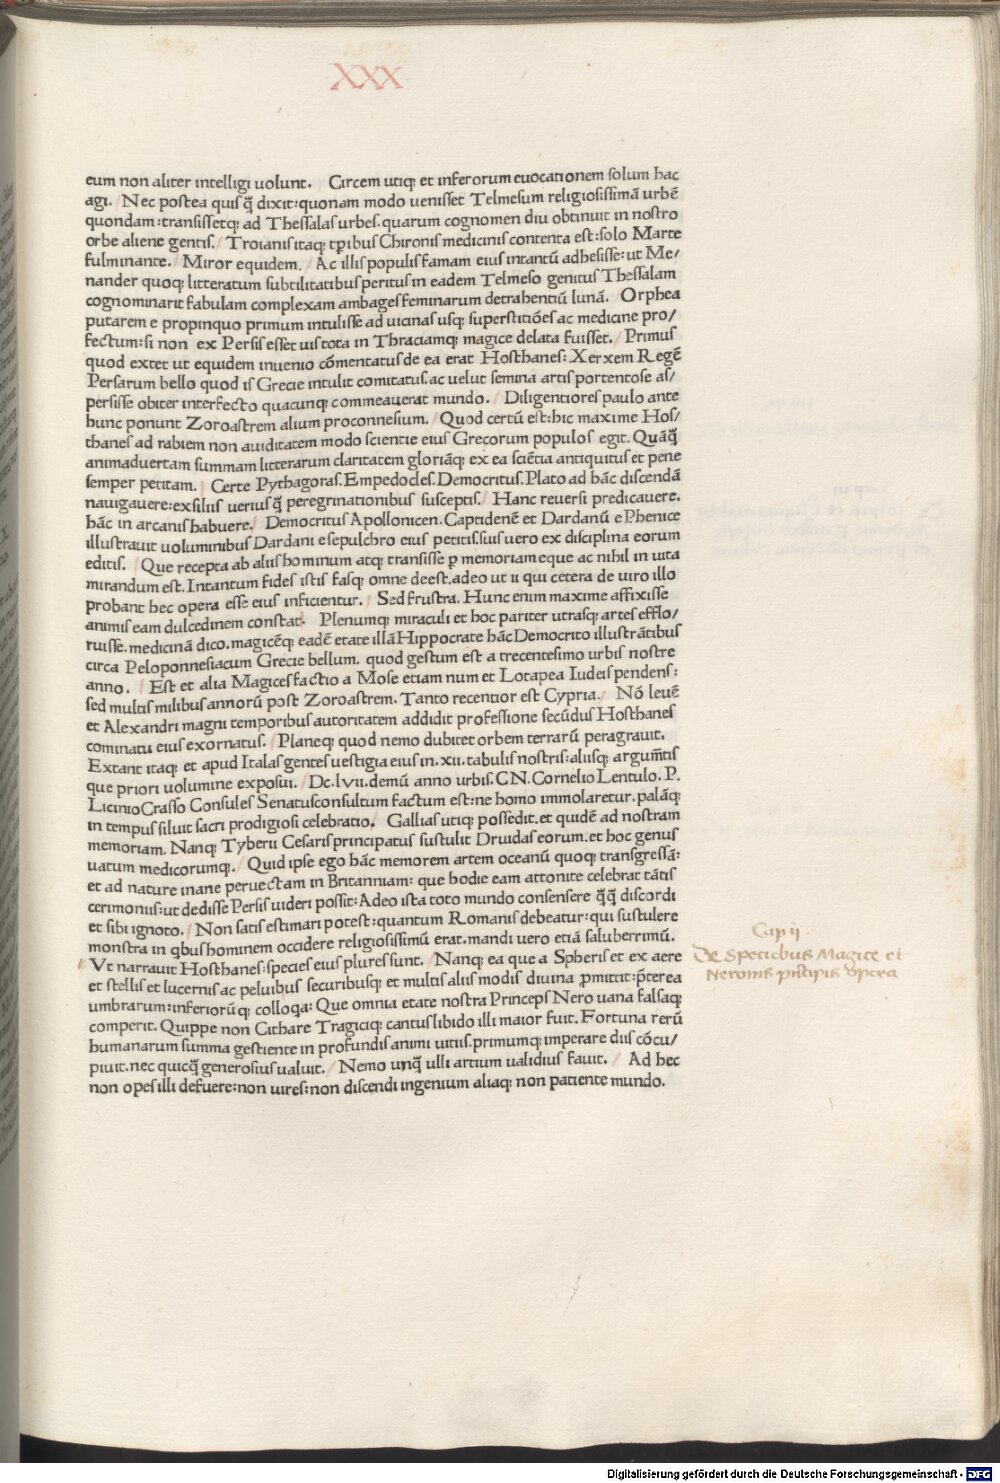 XXX
eum non aliter intelligi uolunt. / Circem utiqꝫ et inferorum euocationem solum hac
agi. / Nec postea quisq̃ꝫ dixit: quonam modo uenisset Telmesum religiosissimā urbē
quondam: transissetqꝫ ad Thessalas urbes. quarum cognomen diu obtinuit in nostro
orbe aliene gentis. / Troianis itaqꝫ tꝑibus Chironis medicinis contenta est: solo Marte
fulminante. / Miror equidem. / Ac illis populis famam eius intantū adhesisse: ut Me/
nander quoqꝫ litteratum subtilitatibus peritus in eadem Telmeso genitus Thessalam
cognominarit fabulam complexam ambages feminarum detrahentiū lunā. / Orphea
putarem e propinquo primum intulisse ad uicinas usqꝫ superstitiōes ac medicine pro/
fectum: si non ex Persis esset uis tota in Thraciamqꝫ magice delata fuisset. / Primus
quod extet ut equidem inuenio cōmentatus de ea erat Hosthanes: Xerxem Regē
Persarum bello quod is Grecie intulit comitatus. ac uelut semina artis portentose as/
persisse obiter interfecto quacunqꝫ commeauerat mundo. / Diligentiores paulo ante
hunc ponunt Zoroastrem alium proconnesium. / Quod certū est: hic maxime Hos/
thanes ad rabiem non auiditatem modo scientie eius Grecorum populos egit. Quāq̃ꝫ
animaduertam summam litterarum claritatem gloriāqꝫ ex ea sciētia antiquitus et pene
semper petitam. | Certe Pythagoras. Empedocles. Democritus. Plato ad hāc discendā
nauigauere: exsiliis uerius q̃ꝫ peregrinationibus susceptis. / Hanc reuersi predicauere.
hāc in arcanis habuere. / Democritus Apollonicen. Captidenē et Dardanū e Phenice
illustrauit uoluminibus Dardani e sepulchro eius petitis. suis uero ex disciplina eorum
editis. / Que recepta ab aliis hominum atqꝫ transisse ꝑ memoriam eque ac nihil in uita
mirandum est. Intantum fides istis fasqꝫ omne deest. adeo ut ii qui cetera de uiro illo
probant hec opera esse eius inficientur. / Sed frustra. Hunc enim maxime affixisse
animis eam dulcedinem constat. Plenumqꝫ miraculi et hoc pariter utrasqꝫ artes efflo/
ruisse. medicinā dico. magicēqꝫ eadē etate illā Hippocrate hāc Democrito illustrātibus
circa Peloponnesiacum Grecie bellum. quod gestum est a trecentesimo urbis nostre
anno. | Est et alia Magices factio a Mose etiam num et Lotapea Iudeis pendens:
sed multis milibus annorū post Zoroastrem. Tanto recentior est Cypria. / Nō leuē
et Alexandri magni temporibus autoritatem addidit professione secūdus Hosthanes
cominatu eius exornatus. / Planeqꝫ quod nemo dubitet orbem terrarū peragrauit.
Extant itaqꝫ et apud Italas gentes uestigia eius in .xii. tabulis nostris: aliisqꝫ argum̄tis
que priori uolumine exposui. / Dc.lvii. demū anno urbis. CN. Cornelio Lentulo. P.
Licinio Crasso Consules Senatusconsultum factum est: ne homo immolaretur. palāqꝫ
in tempus siluit sacri prodigiosi celebratio. / Gallias utiqꝫ possedit. et quidē ad nostram
memoriam. Nanqꝫ Tyberii Cesaris principatus sustulit Druidas eorum. et hoc genus
uatum medicorumqꝫ. / Quid ipse ego hāc memorem artem oceanū quoqꝫ transgressā:
et ad nature inane peruectam in Britanniam: que hodie eam attonite celebrat tātis
cerimoniis: ut dedisse Persis uideri possit: Adeo ista toto mundo consensere q̃ꝫq̃ꝫ discordi
et sibi ignoto. / Non satis estimari potest: quantum Romanis debeatur: qui sustulere
monstra in qbus hominem occidere religiosissimū erat. mandi uero etiā saluberrimū.
Vt narrauit Hosthanes: species eius plures sunt. / Nanqꝫ ea que a Spheris et ex aere
et stellis et lucernis ac peluibus securibusqꝫ et multis aliis modis diuina ꝓmittit: p̄terea
umbrarum: inferiorūqꝫ colloqa: Que omnia etate nostra Princeps Nero uana falsaqꝫ
comperit. Quippe non Cithare Tragiciqꝫ cantus libido illi maior fuit. Fortuna rerū
humanarum summa gestiente in profundis animi uitiis. primumqꝫ imperare diis cōcu/
piuit. nec quicq̃ꝫ generosius ualuit. / Nemo unq̃ꝫ ulli artium ualidius fauit. / Ad hec
non opes illi defuere: non uires: non discendi ingenium aliaqꝫ non patiente mundo.
Cap ij.
De Speciebus Magice et
Neronis pⁱncipis opera
Digitalisierung gefördert durch die Deutsche Forschungsgemeinschaft - DFG